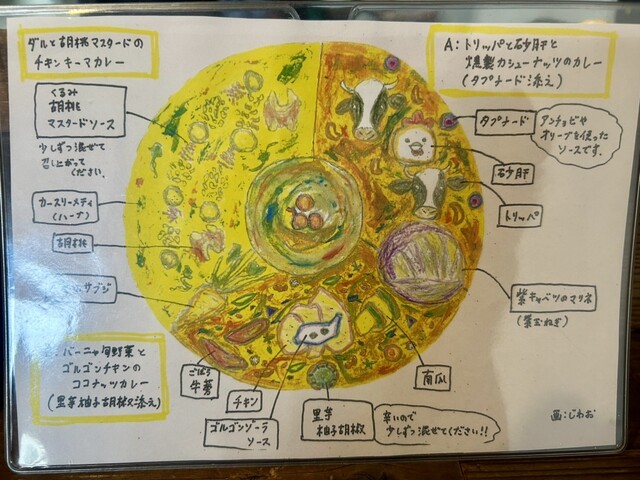 ダルと胡桃マスタードの
チキンキーマカレー
くるみ
胡桃
マスタードソース
少しずつ混ぜて
召し上がって
ください。
カースリーメティ
(ハーブ)
胡桃
サブジ
バーニャ旬野菜と
ゴルゴンチキンの
ココナッツカレー
(里芋柚子胡椒添え)
ごぼう
牛蒡
チキン
ゴルゴンゾーラ
ソース
里芋
柚子胡椒
辛いので
少しずつ混ぜてください!!
南瓜
A:トリッパと砂肝と
燻製カシューナッツのカレー
(タプナード添え)
タプナード
アンチョビや
オリーブを使った
ソースです。
砂肝
トリッパ
紫キャベツのマリネ
(紫玉ねぎ)
画:じわお